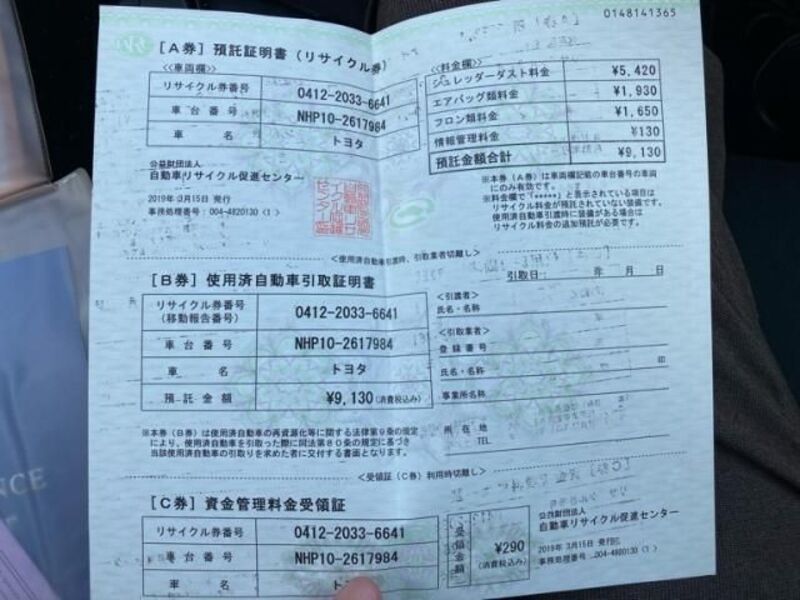 0148141365
[A券] 預託証明書(リサイクル券)
≪車両欄≫
リサイクル券番号 0412-2033-6641
車台番号 NHP10-2617984
車名 トヨタ
公益財団法人
自動車リサイクル促進センター
2019年 3月15日 発行
事務処理番号:004-4820130(1)
≪料金欄≫
シュレッダーダスト料金 ¥5,420
エアバッグ類料金 ¥1,930
フロン類料金 ¥1,650
情報管理料金 ¥130
預託金額合計 ¥9,130
※本券(A券)は車両欄記載の車台番号の車両
にのみ有効です。
※料金欄で「*****」と表示されている項目は
リサイクル料金が預託されていない装備です。
使用済自動車引渡時に装備がある場合は
リサイクル料金の追加預託が必要です。
<使用済自動車引渡時、引取業者切離し>
[B券] 使用済自動車引取証明書
リサイクル券番号 0412-2033-6641
(移動報告番号)
車台番号 NHP10-2617984
車名 トヨタ
預託金額 ¥9,130(消費税込み)
※本券(B券)は使用済自動車の再資源化等に関する法律第9条の規定
により、使用済自動車を引取った際に同法第80条の規定に基づき
当該使用済自動車の引取りを求めた者に交付する書面となります。
引取日: 年 月 日
<引渡者>
氏名・名称
<引取業者>
登録番号
氏名・名称 印
事業所名称
所在地
TEL
<受領証(C券)利用時切離し>
[C券] 資金管理料金受領証
リサイクル券番号 0412-2033-6641
車台番号 NHP10-2617984
車名 トヨタ
受領金額 ¥290
(消費税込み)
公益財団法人
自動車リサイクル促進センター
2019年 3月15日 発行
事務処理番号:004-4820130(1)
NCE